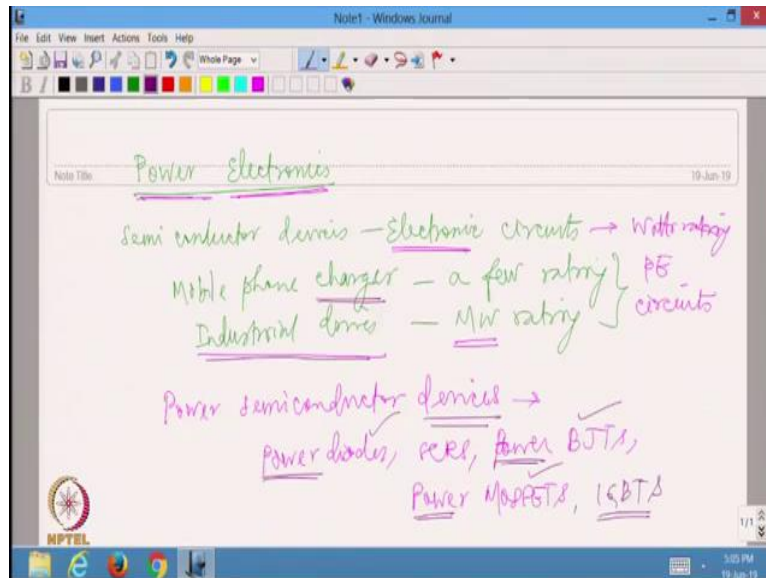 Note1 - Windows Journal
File Edit View Insert Actions Tools Help
Whole Page
B I
Note Title
19-Jun-19
Power Electronics
Semi conductor devices - Electronic circuits → Watts rating
Mobile phone charger - a few rating } PE
Industrial drives - MW rating } circuits
Power semiconductor devices →
Power diodes, SCRS, Power BJTS,
Power MOSFETS, IGBTS
NPTEL
1/1
5:05 PM
19-Jun-19